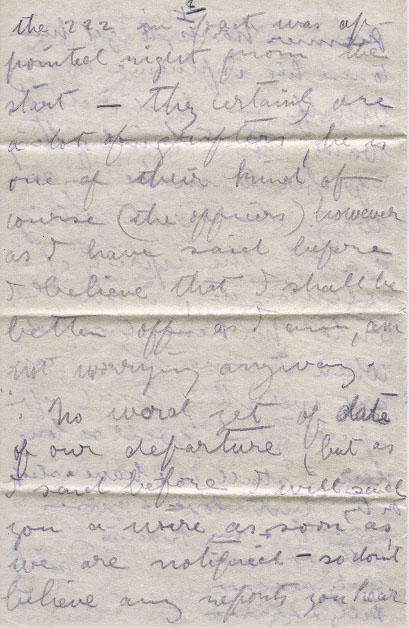 2
the 222 in fact was ap-
pointed right from the
start – they certainly are
a lot of grafters, he is
one of their kind of
course (the officers) however
as I have said before
I believe that I shall be
better off as I am, am
not worrying anyway.
No word yet of date
of our departure, but as
I said before I will send
you a wire as soon as
we are notified – so don't
believe any reports you hear